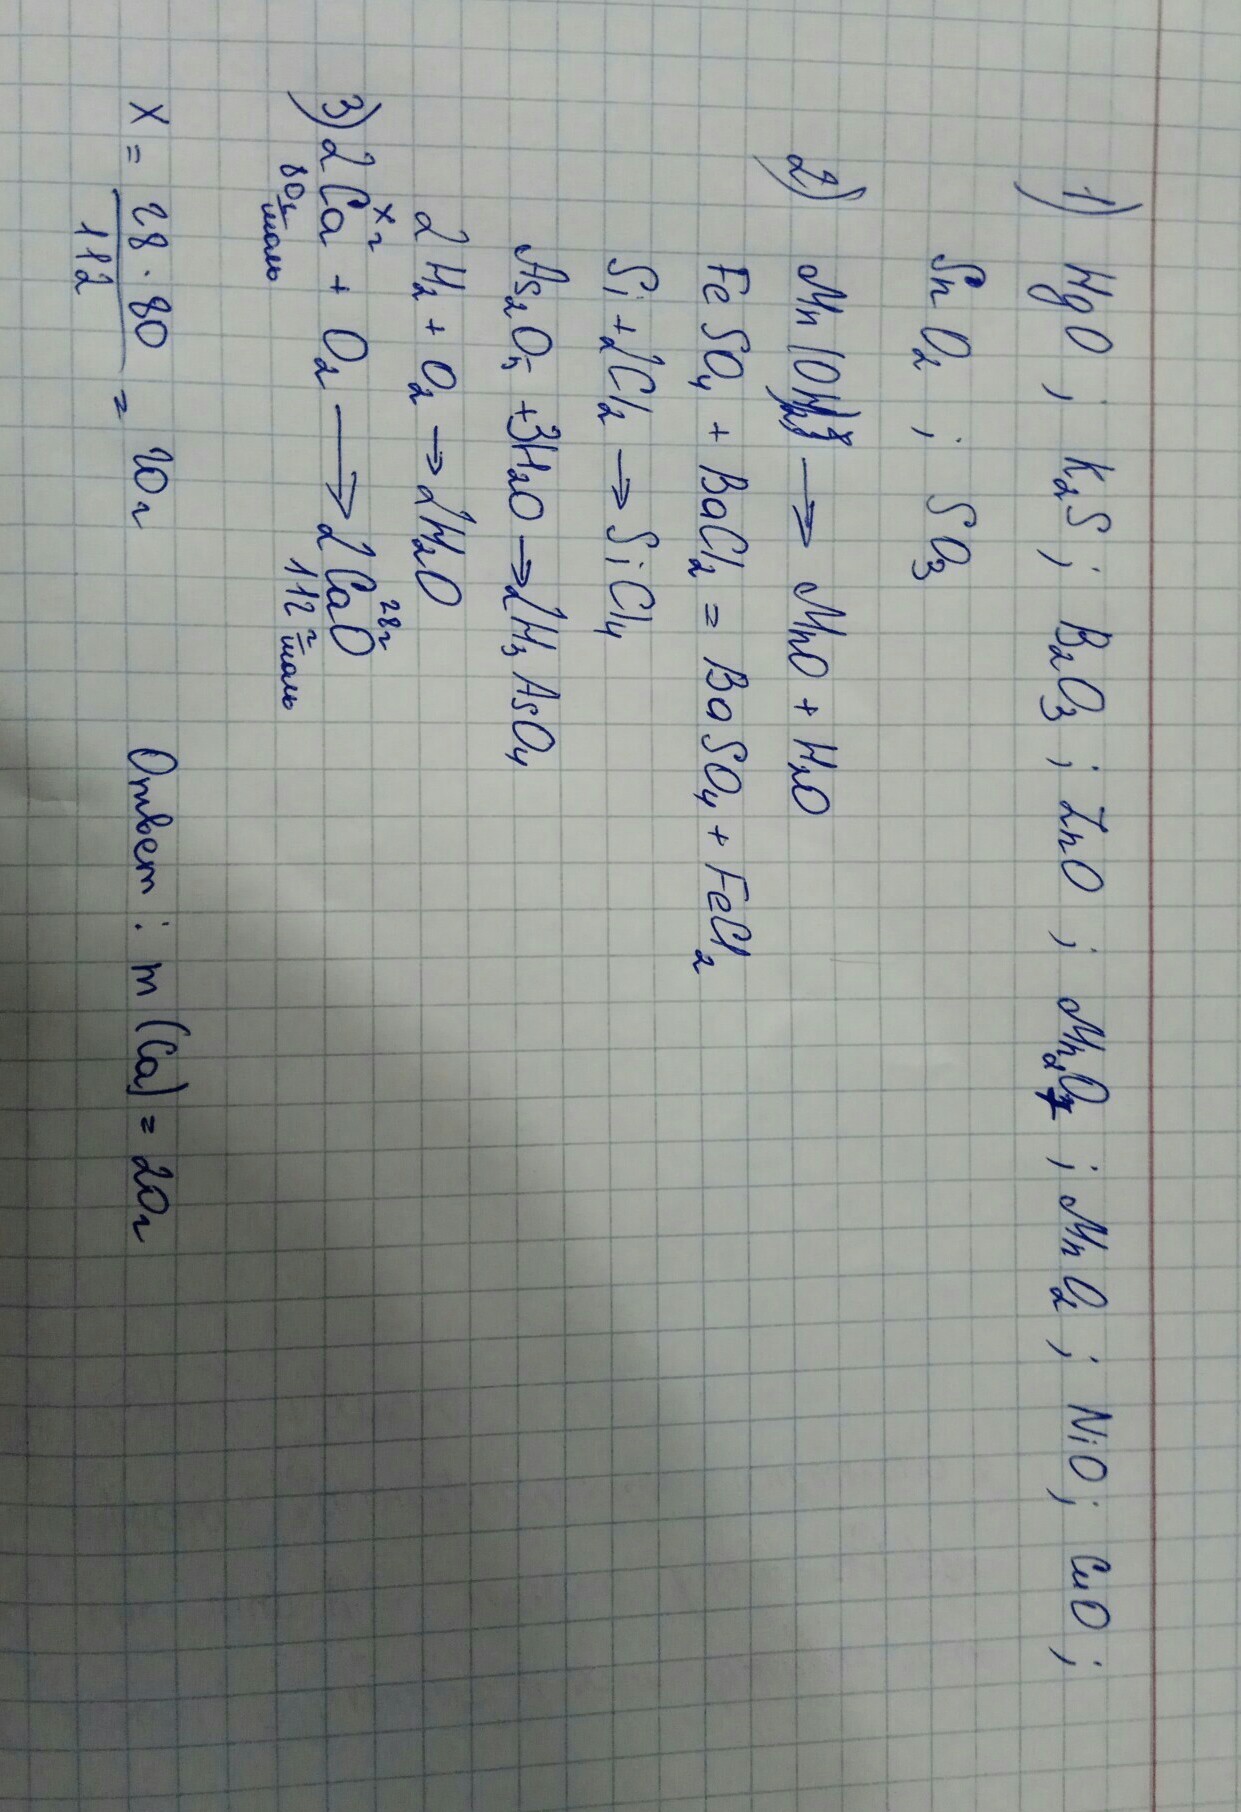 1) HgO ; K₂S ; B₂O₃ ; ZnO ; Mn₂O₇ ; MnO₂ ; NiO ; CuO ;
SnO₂ ; SO₃
2) Mn(OH)₂ → MnO + H₂O
FeSO₄ + BaCl₂ = BaSO₄ + FeCl₂
Si + 2Cl₂ → SiCl₄
As₂O₅ + 3H₂O → 2H₃AsO₄
2H₂ + O₂ → 2H₂O
xг 28г
3) 2Ca + O₂ → 2CaO
80 г/моль 112 г/моль
x = 28 · 80 / 112 = 20г Ответ : m (Ca) = 20г